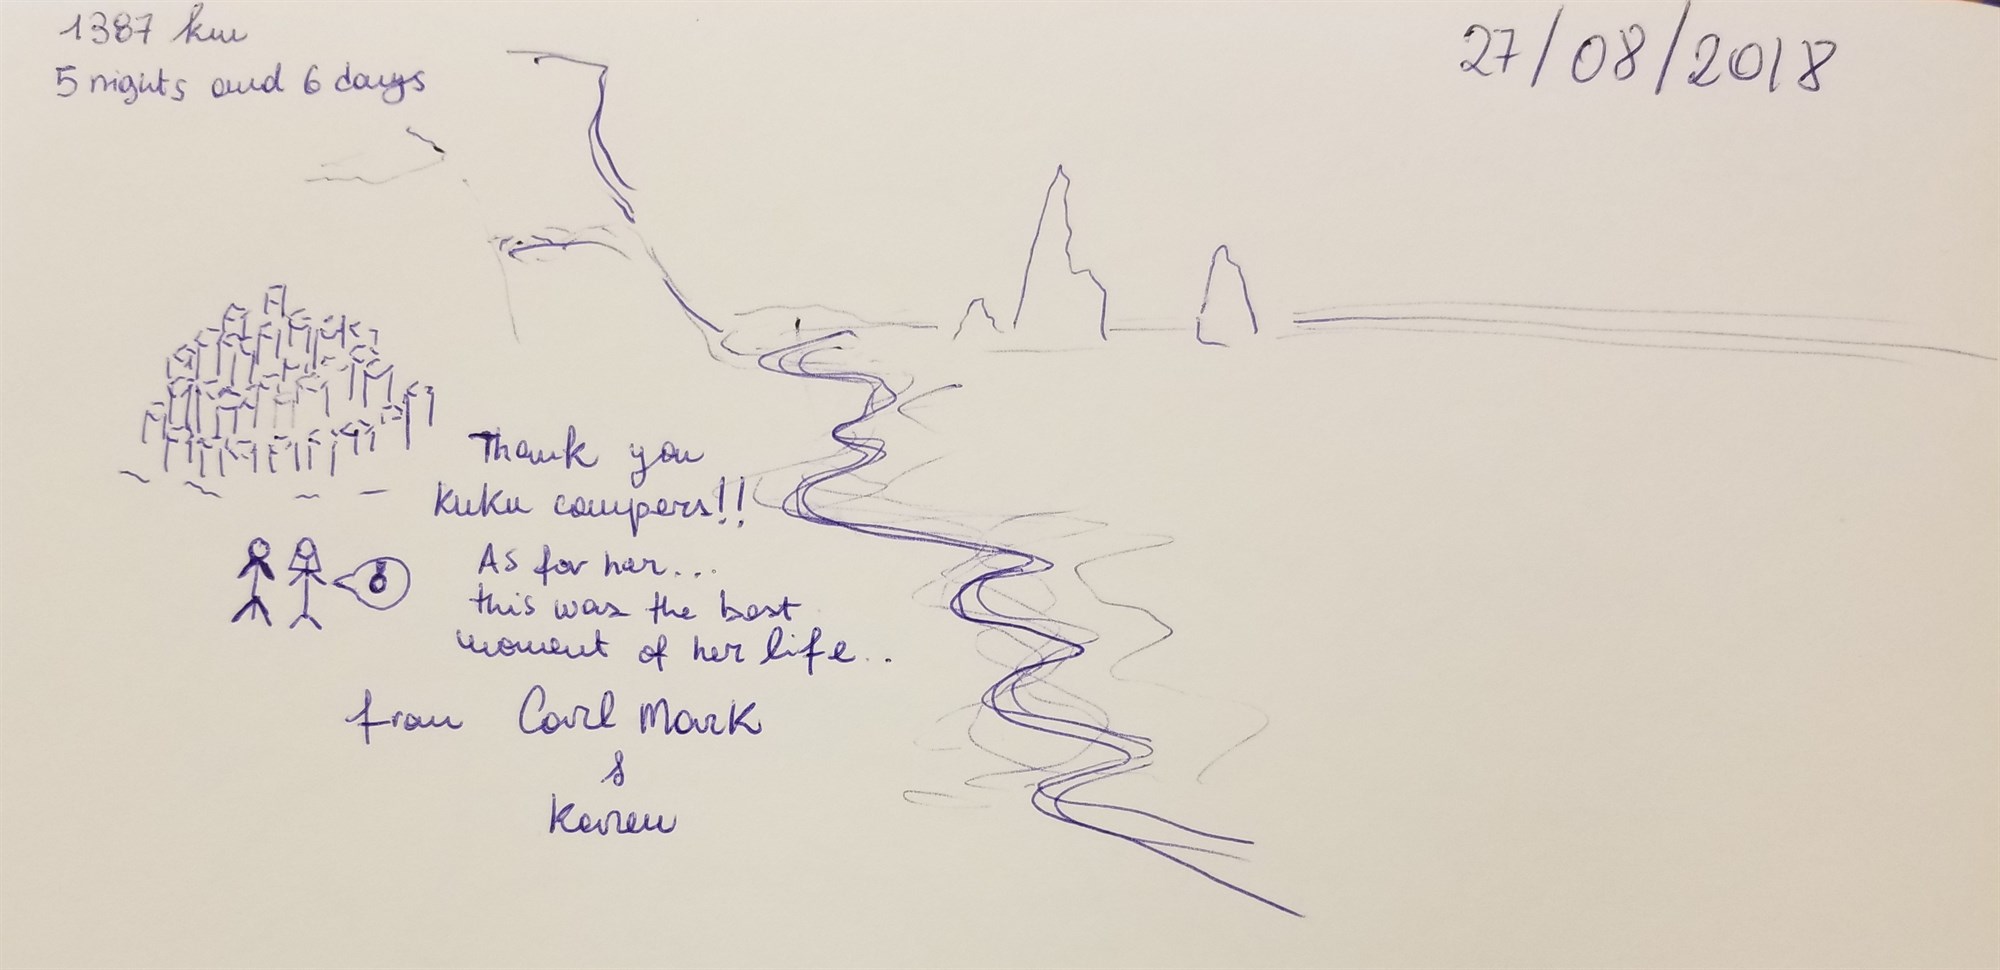 1387 km
5 nights and 6 days
27/08/2018
Thank you
KuKu campers!!
As for her...
this was the best
moment of her life..
from Carl Mark
&
Karen